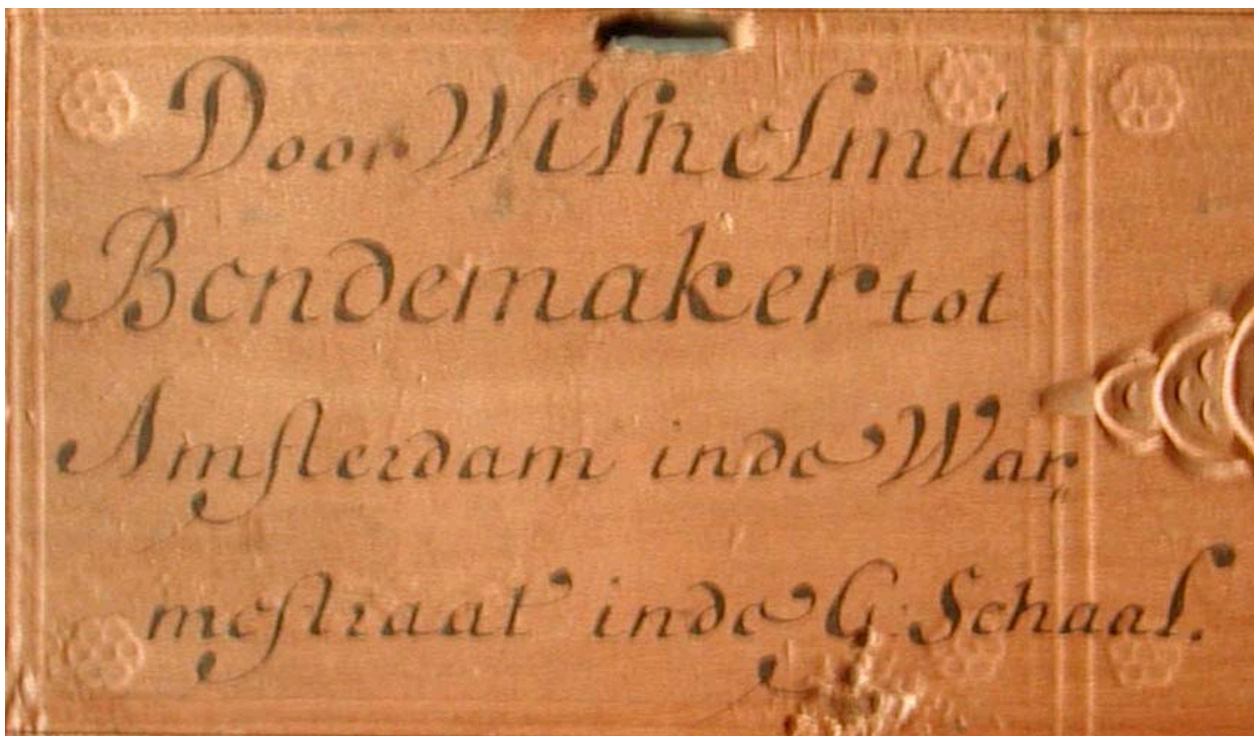 Door Wilhelmus
Bondemaker tot
Amsterdam inde War
mestraat inde G Schaal.